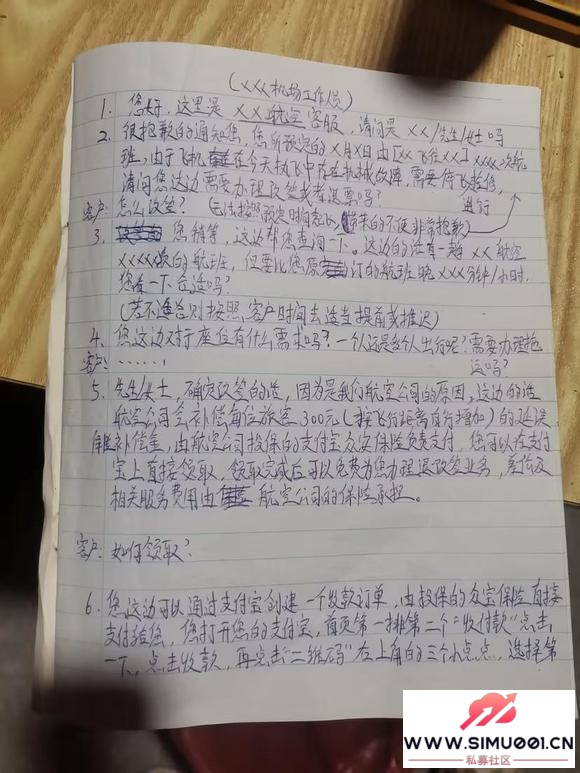 (xxx机场工作人员)
1. 您好,这里是xx航空客服,请问是xx/先生/女士吗
2. 很抱歉的通知您,您所预定的x月x日由[xx飞往xx]xxxx次航
班,由于飞机在今天执飞中存在机械故障,需要停飞检修,
请问您这边需要办理改签或者退票吗?
进行
客户: 怎么改签? (无法按照预定时间起飞,带来的不便非常抱歉)
3. 您稍等,这边帮您查询一下。这边的话有一趟xx航空
xxxx次的航班,但要比您原订的航班晚xxx分钟/小时.
您看一下合适吗?
(若不适合则按照客户时间去适当提前或推迟)
4. 您这边对于座位有什么需求吗?一个人还是多个人出行呢?需要办理托
运吗?
客户: ......
5. 先生/女士,确定改签的话,因为是我们航空公司的原因,这边的话
航空公司会补偿每位旅客300元(按飞行距离自行增加)的延误
保险补偿金,由航空公司投保的支付宝众安保险负责支付,您可以在支付
宝上直接领取,领取完成后可以免费为您办理退改签业务,差价及
相关服务费用由航空公司的保险承担。
客户: 如何领取?
6. 您这边可以通过支付宝创建一个收款订单,由投保的众安保险直接
支付给您,您打开您的支付宝,首页第一排第二个“收付款”点击
一下,点击收款,再点击“二维码”右上角的三个小点点,选择第
WWW.SIMU001.CN
私募社区